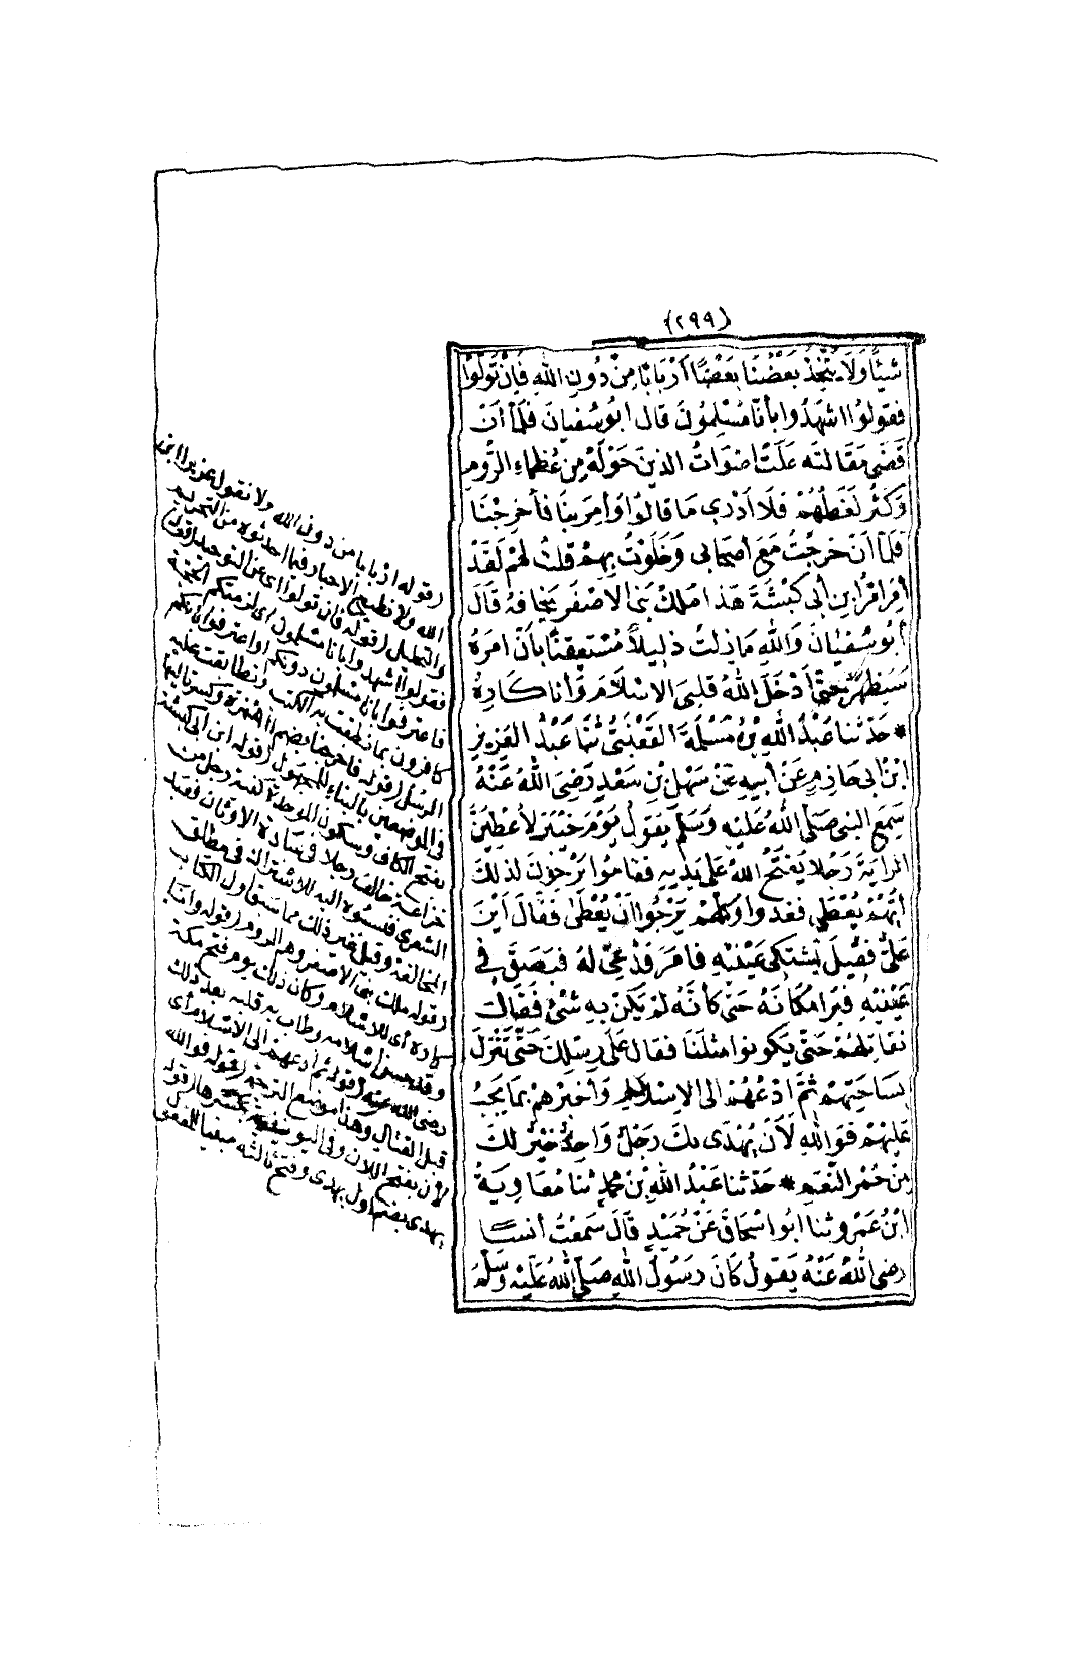 (٢٩٩)
شَيْئًا وَلَا يَتَّخِذَ بَعْضُنَا بَعْضًا أَرْبَابًا مِنْ دُونِ اللهِ فَإِنْ تَوَلَّوْا
فقولوُا اشْهَدُوا بأنّا مُسْلِمُونَ قال ابُوسُفيانَ فلمّا أنْ
قَضَى مَقَالتَه عَلَتْ اصْوَاتُ الذينَ حَوْلَهُ مِنْ عُظَماءِ الرّومِ
وَكَثُرَ لَغَطُهُمْ فَلَا أدْرِي مَا قالوُا وَأمِرَ بِنَا فَأُخْرِجْنَا
فلمّا انْ خرجْتُ مَعَ أصحَابى وَخَلَوْتُ بِهِمْ قلتُ لهُمْ لَقَدْ
أَمِرَ امْرُ ابنِ أبى كَبْشَةَ هَذا مَلِكُ بَنِى الاصْفَرِ يَخافُهُ قَالَ
أبُوسُفيَانَ وَاللهِ مَا زِلْتُ ذَلِيلاً مُسْتَيقِنًا بأنّ امْرَهُ
سَيَظهَرُ حَتّى أدْخَلَ اللهُ قلبِىَ الاسْلَامَ وَأنا كَارِهٌ
* حَدّثنا عَبْدُ اللهِ بْنُ مَسْلَمَةَ القَعْنَبِىُّ ثَنَا عَبْدُ العَزِيزِ
ابْنُ ابى حَازِمٍ عَنْ أبيهِ عَنْ سَهْلِ بْنِ سَعْدٍ رَضِىَ اللهُ عَنْهُ
سَمِعَ النبىَّ صَلّى اللهُ عَلَيْهِ وَسَلّمَ يَقولُ يَوْمَ خَيْبَرَ لأُعْطِيَنَّ
الرايَةَ رَجُلًا يَفتَحُ اللهُ عَلى يَدَيهِ فقامُوا يَرْجُونَ لذلكَ
أيّهُمْ يُعْطَى فغدَوا وَكلّهُمْ يَرْجُوا انْ يُعْطَى فقَالَ أيْنَ
عَلىٌّ فقِيلَ يَشتَكِى عَيْنَيْهِ فأمَرَ فَدُعِىَ لهُ فبَصَقَ فِى
عَيْنَيْهِ فبَرَأ مكَانَهُ حَتّى كَأنّهُ لمْ يَكنْ بِهِ شَىْءٌ فقَالَ
نقاتِلهُمْ حَتّى يَكونوُا مثلَنَا فقالَ عَلى رِسْلِكَ حَتّى تَنْزِلَ
بسَاحَتِهِمْ ثمّ ادْعُهُمْ الى الاِسْلامِ وَأخبِرْهُمْ بمَا يَجِبُ
عَليْهِمْ فوَاللهِ لَأنْ يُهْدَى بكَ رَجُلٌ وَاحِدٌ خَيْرٌ لكَ
مِنْ حُمْرِ النّعَمِ * حَدّثنا عَبْدُ اللهِ بْنُ محمدٍ ثنا مُعَاوِيَةُ
ابْنُ عَمْروٍ ثنا ابُو اسْحَاقَ عَنْ حُمَيْدٍ قَالَ سَمعْتُ أنسًا
رَضىَ اللهُ عَنْهُ يَقولُ كَانَ رَسُولُ اللهِ صَلّى اللهُ عَلَيْهِ وَسَلّمَ
(قوله اربابا من دون الله ولا نقول عزير ابن
الله ولا نطيع الاحبار فيما احدثوه من التحريم
والتحليل (قوله فان تولوا اى عن التوحيد (قوله
فقولوا اشهدوا بانا مسلمون اى لزمتكم الحجة
فاعترفوا بانا مسلمون دونكم او اعترفوا بانكم
كافرون بما نطقت به الكتب وتطابقت عليه
الرسل (قوله فاخرجنا بضم الهمزة وكسر تاليها
فى الموضعين بالبناء للمجهول (قوله ابن ابى كبشة
بفتح الكاف وسكون الموحدة كنية رجل من
خزاعة خالف رجلا فى عبادة الاوثان فعبد
الشعرى فنسبوه اليه للاشتراك فى مطلق
المخالفة وقيل غير ذلك مما سبق اول الكتاب
(قوله ملك بنى الاصفر وهم الروم (قوله وانا
كاره أى للاسلام وكان ذلك يوم فتح مكة
وقد حسن اسلامه وطاب به قلبه بعد ذلك
رضى الله عنه (قوله ثم ادعهم الى الاسلام أى
قبل القتال وهذا موضع الترجمة (قوله فوالله
لأن بفتح اللام وفى اليونينية بكسرها (قوله
يهدى بضم اول يهدى وفتح ثالثه مبنيا للمفعول